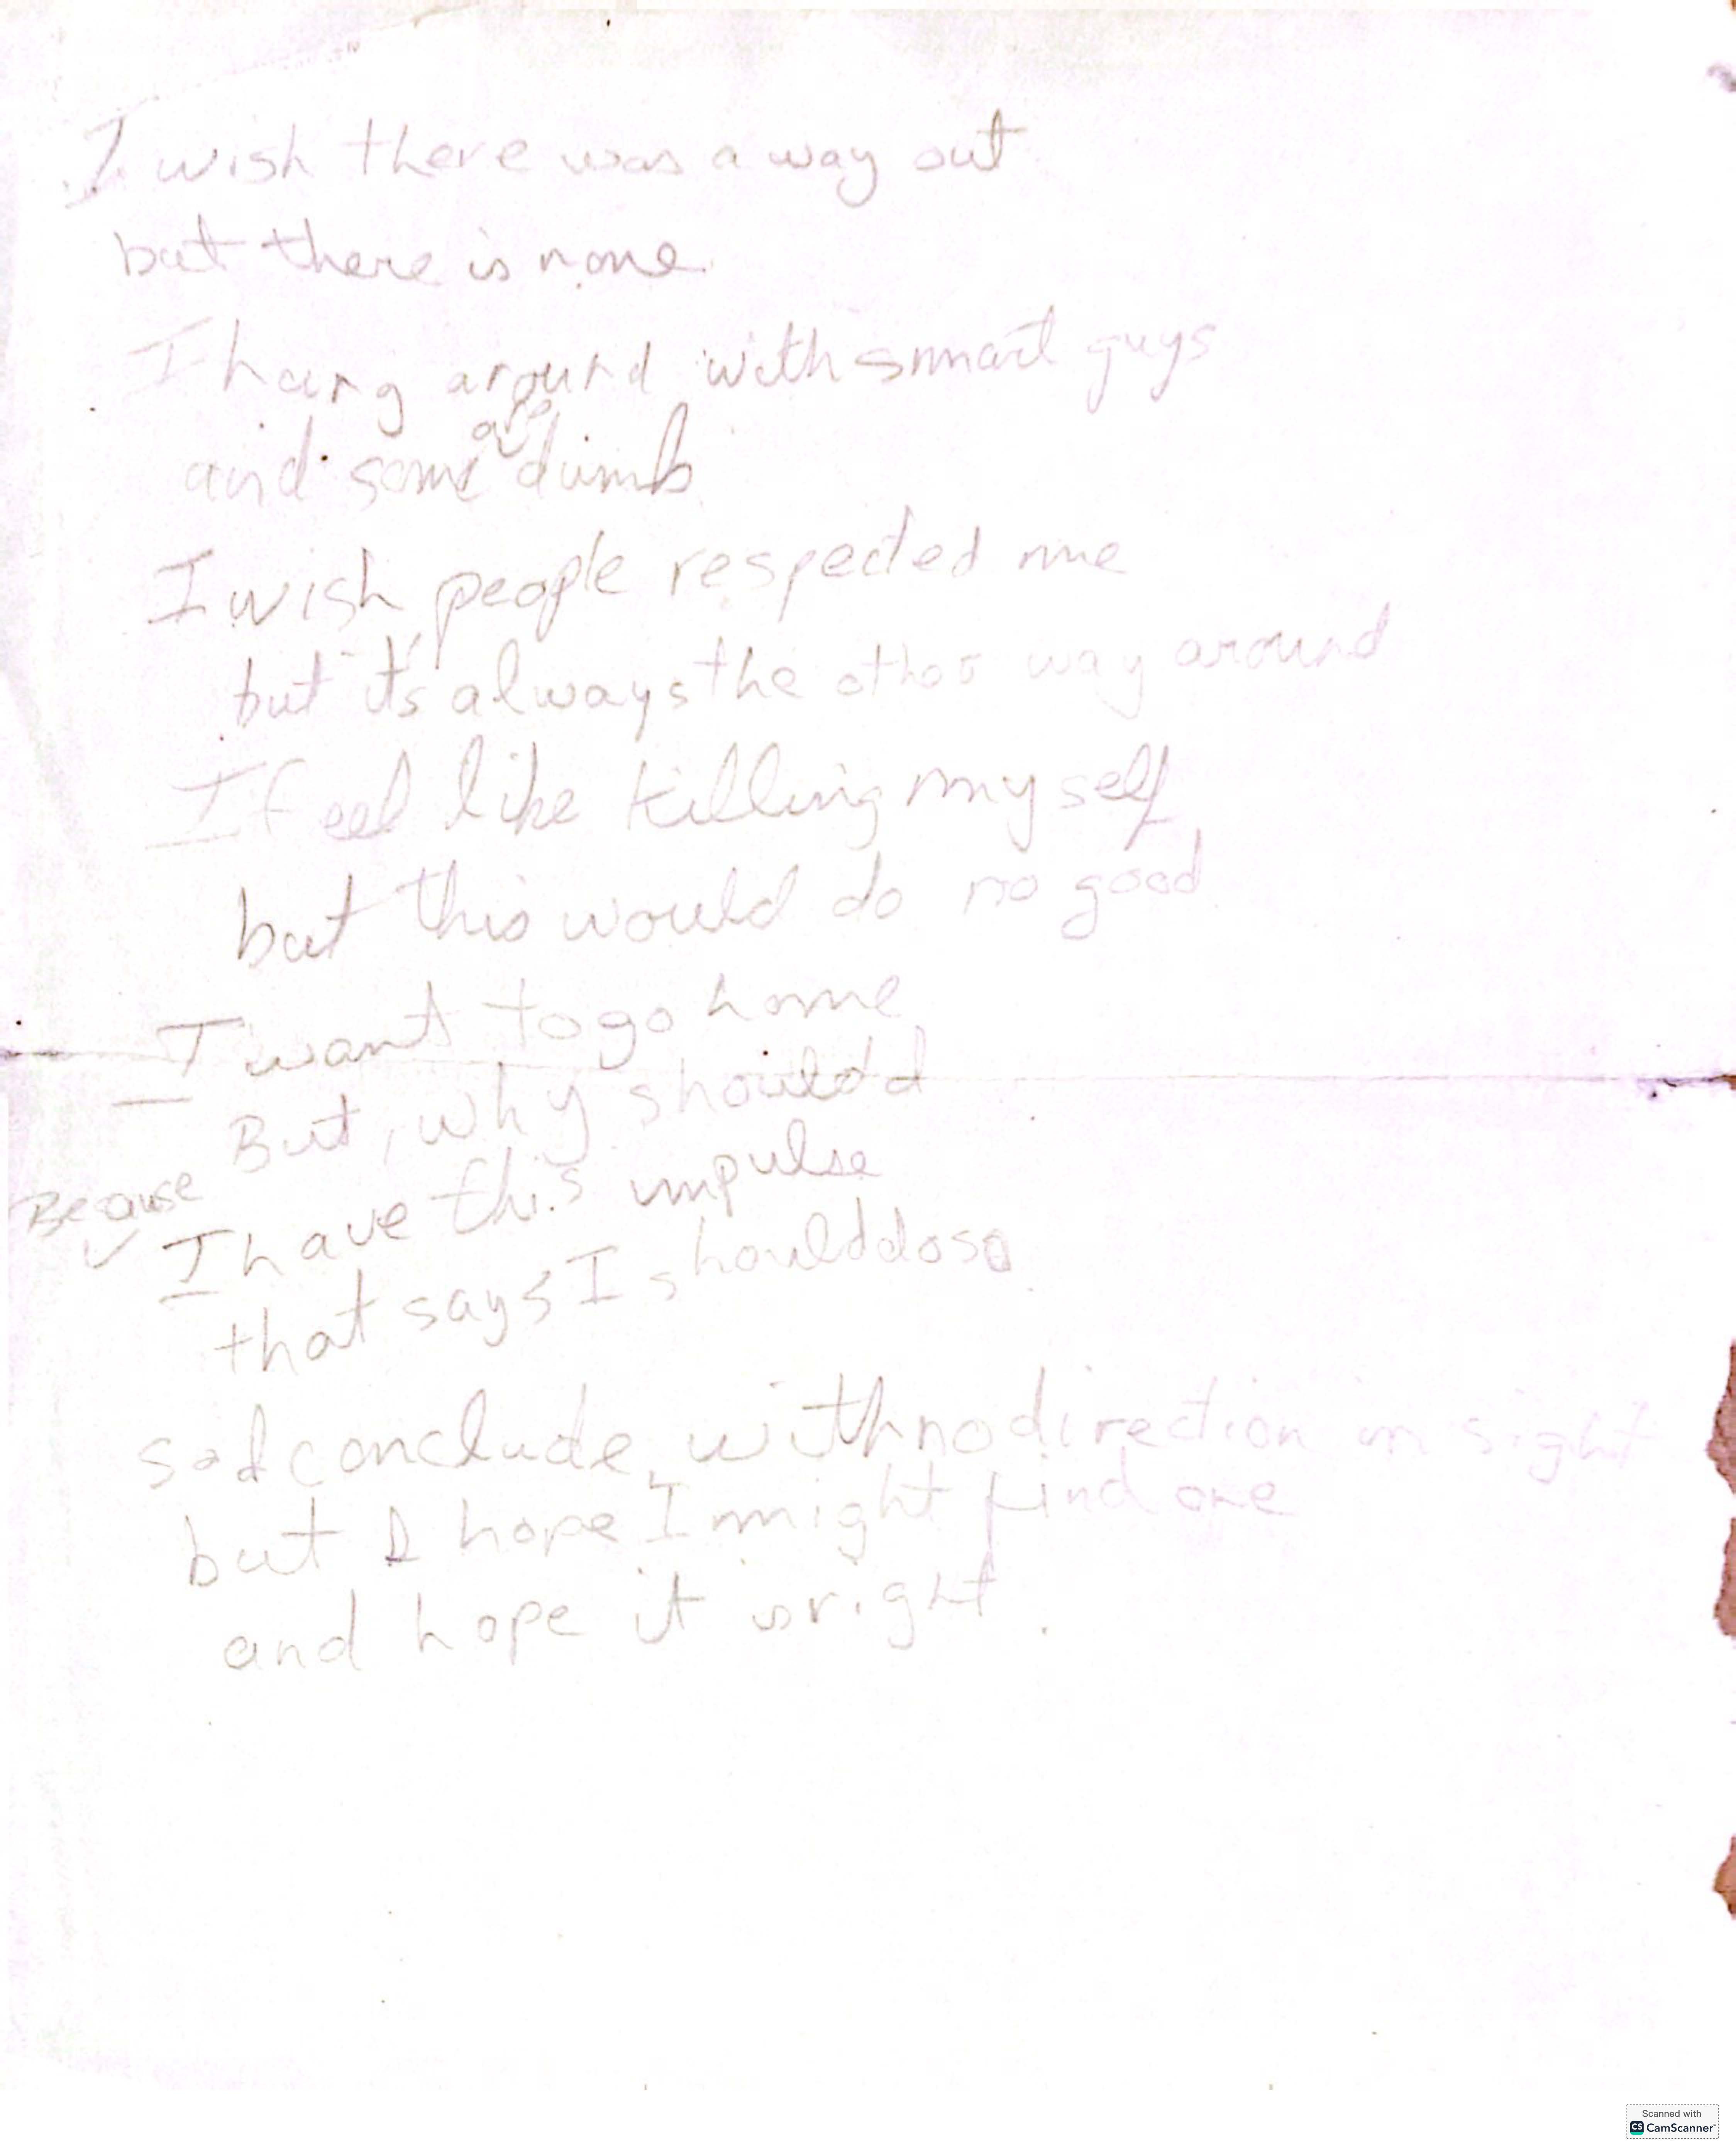 I wish there was a way out
but there is none.
I hang around with smart guys
and some are dumb
I wish people respected me
but it's always the other way around
I feel like killing myself
but this would do no good
I want to go home
But, why should I
Because I have this impulse
that says I should do so.
so I conclude, with no direction in sight
but I hope I might find one
and hope it is right.
Scanned with
CS CamScanner